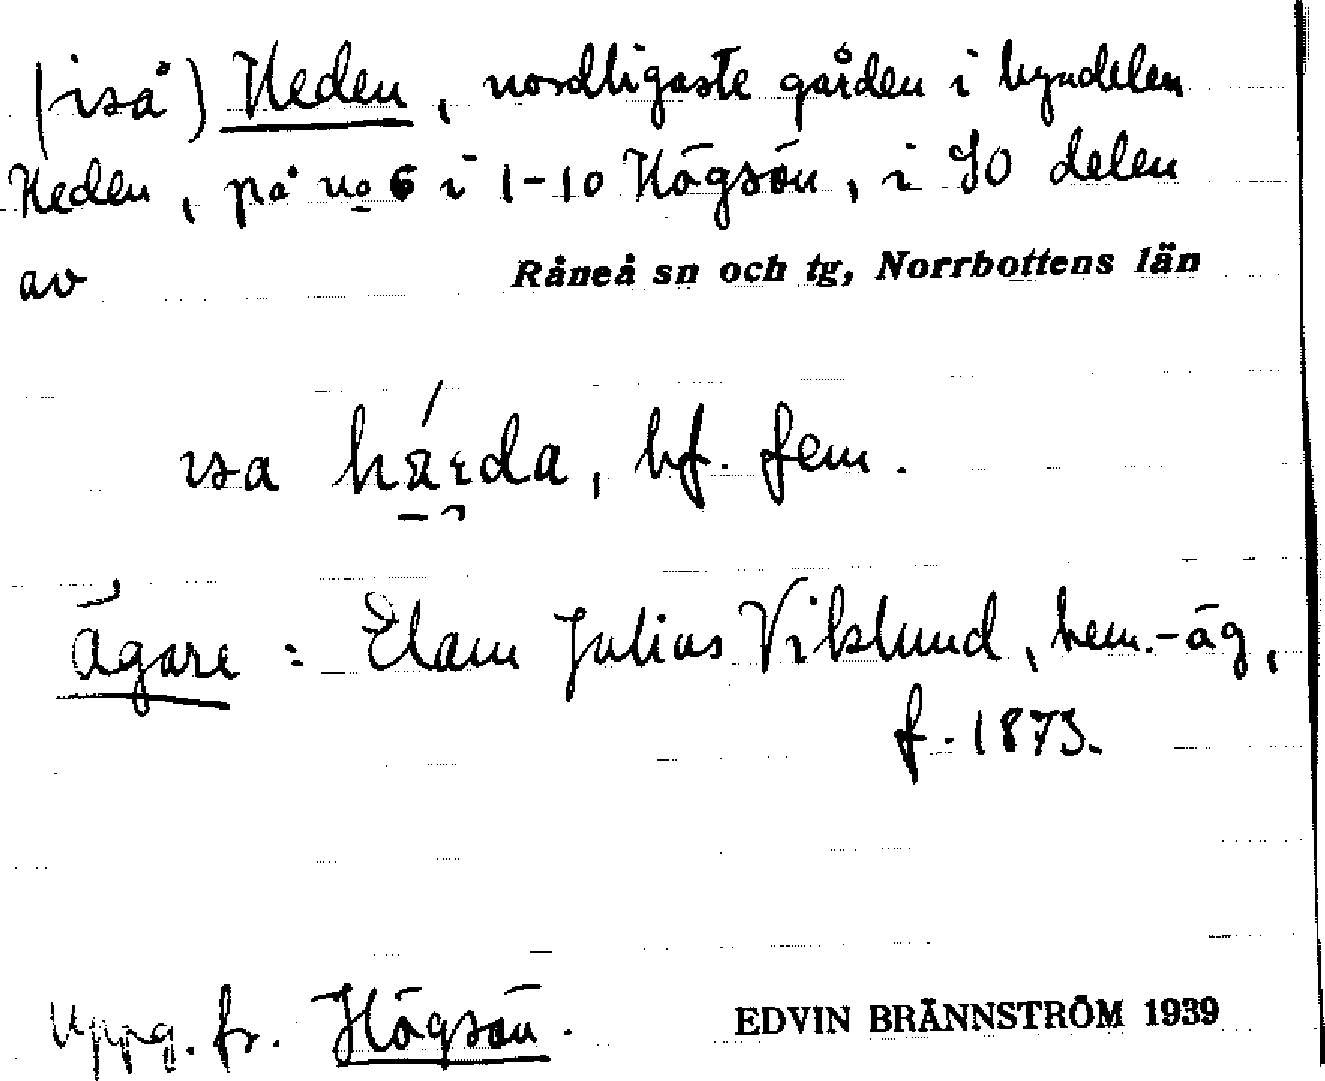 (iså) Heden, nordligaste gården i byndelen
Heden, på no 6 i 1-10 Högsön, i SO delen
av Råneå sn och tg, Norrbottens län
bf. fem.
Ägare: Elam Julius Viklund, hem.-äg,
f. 1873.
Uppg. fr. Högsön. EDVIN BRÄNNSTRÖM 1939